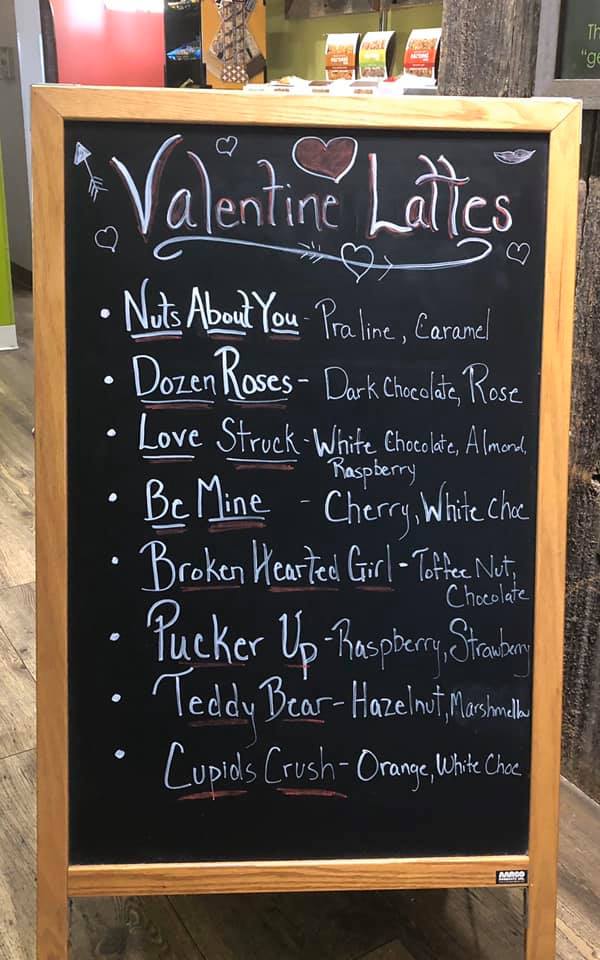 Th
"ge
Valentine Lattes
• Nuts About You - Praline, Caramel
• Dozen Roses - Dark Chocolate, Rose
• Love Struck - White Chocolate, Almond,
Raspberry
• Be Mine - Cherry, White Choc
• Broken Hearted Girl - Toffee Nut,
Chocolate
• Pucker Up - Raspberry, Strawberry
• Teddy Bear - Hazelnut, Marshmellow
• Cupids Crush - Orange, White Choc
AARCO